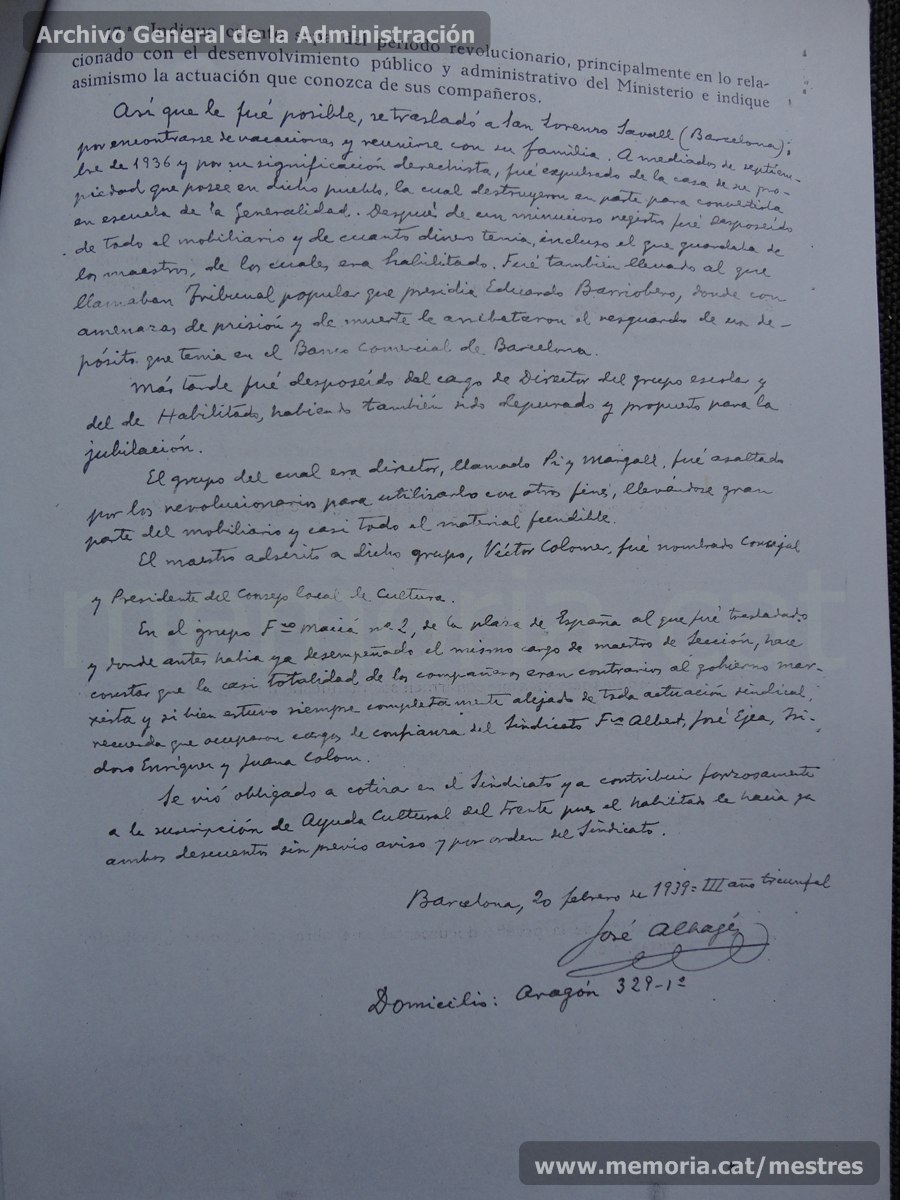 Archivo General de la Administración
periodo revolucionario, principalmente en lo rela-
cionado con el desenvolvimiento público y administrativo del Ministerio e indique
asimismo la actuación que conozca de sus compañeros.
Así que le fué posible, se trasladó a San Lorenzo Savall (Barcelona);
por encontrarse de vacaciones y reunirse con su familia. A mediados de septiem-
bre de 1936 y por su significación derechista, fué expulsado de la casa de su pro-
piedad que posee en dicho pueblo, la cual destruyeron en parte para convertirla
en escuela de la Generalidad. Después de un minucioso registro fué desposeído
de todo el mobiliario y de cuanto dinero tenia, incluso el que guardaba de
los maestros, de los cuales era habilitado. Fué también llevado al que
llamaban Tribunal popular que presidia Eduardo Barriobero, donde con
amenazas de prisión y de muerte le arrebataron el resguardo de un de-
pósito que tenia en el Banco Comercial de Barcelona.
Más tarde fué desposeído del cargo de Director del grupo escolar y
del de Habilitado, habiendo también sido depurado y propuesto para la
jubilación.
El grupo del cual era director, llamado Pi y Margall, fué asaltado
por los revolucionarios para utilizarlo con otros fines, llevándose gran
parte del mobiliario y casi todo el material fungible.
El maestro adscrito a dicho grupo, Víctor Colomer, fué nombrado Concejal
y Presidente del Consejo local de Cultura.
En el grupo Fco Maciá nº 2, de la plaza de España al que fué trasladado
y donde antes habia ya desempeñado el mismo cargo de maestro de Sección, hace
constar que la casi totalidad de los compañeros eran contrarios al gobierno mar-
xista y si bien estuvo siempre completamente alejado de toda actuación sindical,
recuerda que ocuparon cargos de confianza del Sindicato Fco Albert, José Ejea, Isi-
doro Enríquez y Juana Colom.
Se vió obligado a cotizar en el Sindicato y a contribuir forzosamente
a la suscripción de Ayuda Cultural del Frente pues el habilitado le hacia ya
ambos descuentos sin previo aviso y por orden del Sindicato.
Barcelona, 20 febrero de 1939 = III año triunfal
José Albagés
Domicilio: Aragón 329-1º
www.memoria.cat/mestres